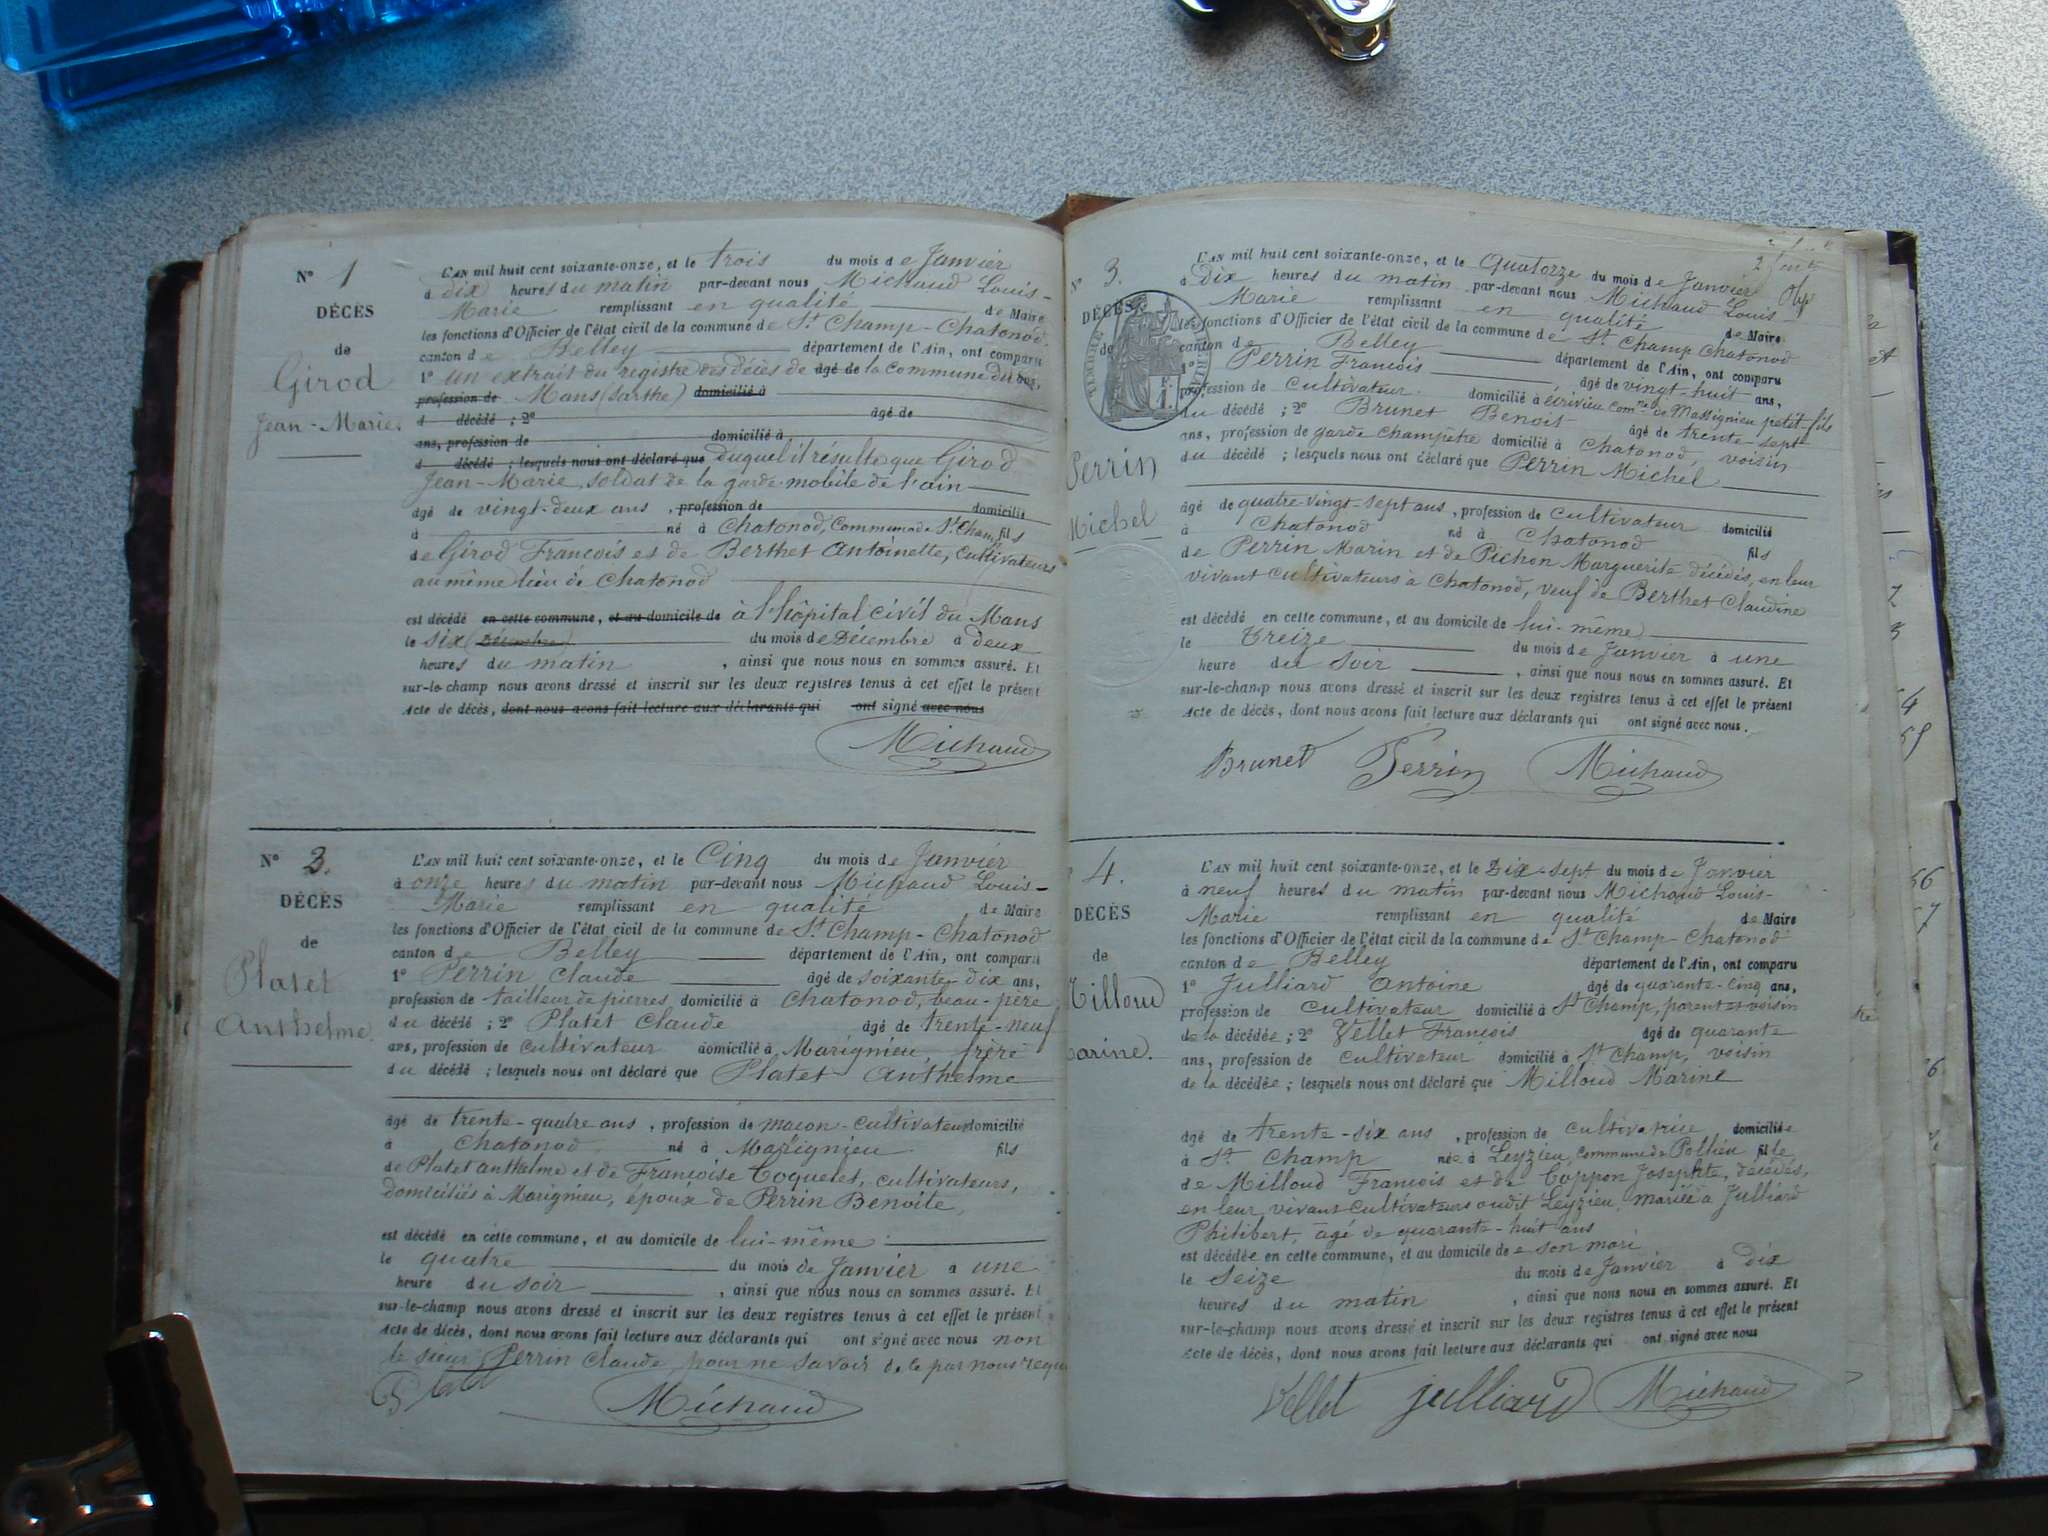 N° 1
DÉCÈS
de
Girod
Jean-Marie.
L'AN mil huit cent soixante-onze, et le trois du mois de Janvier
à dix heures du matin par-devant nous Michaud Louis-
Marie remplissant en qualité de Maire
les fonctions d'Officier de l'état civil de la commune de St Champ-Chatonod
canton de Belley département de l'Ain, ont comparu
1° un extrait du registre des décès de âgé de la Commune du ans,
profession de Mans (Sarthe) domicilié à
d décédé ; 2° âgé de
ans, profession de domicilié à
d décédé ; lesquels nous ont déclaré que duquel il résulte que Girod
Jean-Marie, soldat de la garde mobile de l'ain
âgé de vingt-deux ans , profession de domicilié
à né à Chatonod, Commune de St Champ fils
de Girod François et de Berthet Antoinette, cultivateurs
au même lieu de Chatonod
est décédé en cette commune, et au domicile de à l'hôpital civil du Mans
le six (Décembre) du mois de Décembre à deux
heures du matin , ainsi que nous nous en sommes assuré. Et
sur-le-champ nous avons dressé et inscrit sur les deux registres tenus à cet effet le présent
Acte de décès, dont nous avons fait lecture aux déclarants qui ont signé avec nous
Michaud
N° 2.
DÉCÈS
de
Platet
Anthelme.
L'AN mil huit cent soixante-onze, et le Cinq du mois de Janvier
à onze heures du matin par-devant nous Michaud Louis-
Marie remplissant en qualité de Maire
les fonctions d'Officier de l'état civil de la commune de St Champ-Chatonod
canton de Belley département de l'Ain, ont comparu
1° Perrin Claude âgé de soixante-dix ans,
profession de tailleur de pierres domicilié à Chatonod, beau-père
du décédé ; 2° Platet Claude âgé de trente-neuf
ans, profession de cultivateur domicilié à Marignieu, frère
du décédé ; lesquels nous ont déclaré que Platet Anthelme
âgé de trente-quatre ans , profession de maçon-cultivateur domicilié
à Chatonod né à Marignieu fils
de Platet Anthelme et de Françoise Coquelet, cultivateurs,
domiciliés à Marignieu, époux de Perrin Benoîte,
est décédé en cette commune, et au domicile de lui-même
le quatre du mois de Janvier à une
heure du soir , ainsi que nous nous en sommes assuré. Et
sur-le-champ nous avons dressé et inscrit sur les deux registres tenus à cet effet le présent
Acte de décès, dont nous avons fait lecture aux déclarants qui ont signé avec nous non
le sieur Perrin Claude, pour ne savoir de le par nous requ
Platet Michaud
N° 3.
DÉCÈS
de
Perrin
Michel
L'AN mil huit cent soixante-onze, et le Quatorze du mois de Janvier
à Dix heures du matin par-devant nous Michaud Louis-
Marie remplissant en qualité de Maire
les fonctions d'Officier de l'état civil de la commune de St Champ Chatonod
canton de Belley département de l'Ain, ont comparu
1° Perrin François âgé de vingt-huit ans,
profession de cultivateur domicilié à écrivieu Comne de Massignieu petit-fils
du décédé ; 2° Brunet Benoit âgé de trente-sept
ans, profession de garde champêtre domicilié à Chatonod, voisin
du décédé ; lesquels nous ont déclaré que Perrin Michel
âgé de quatre-vingt-sept ans , profession de cultivateur domicilié
à Chatonod né à Chatonod fils
de Perrin Marin et de Pichon Marguerite décédés, en leur
vivant cultivateurs à Chatonod, veuf de Berthet Claudine
est décédé en cette commune, et au domicile de lui-même
le Treize du mois de Janvier à une
heure du soir , ainsi que nous nous en sommes assuré. Et
sur-le-champ nous avons dressé et inscrit sur les deux registres tenus à cet effet le présent
Acte de décès, dont nous avons fait lecture aux déclarants qui ont signé avec nous.
Brunet Perrin Michaud
4.
DÉCÈS
de
Milloud
Marine.
L'AN mil huit cent soixante-onze, et le Dix-sept du mois de Janvier
à neuf heures du matin par-devant nous Michaud Louis-
Marie remplissant en qualité de Maire
les fonctions d'Officier de l'état civil de la commune de St Champ-Chatonod
canton de Belley département de l'Ain, ont comparu
1° Julliard Antoine âgé de quarante-cinq ans,
profession de cultivateur domicilié à St Champ, parent et voisin
de la décédée ; 2° Vellet François âgé de quarante
ans, profession de cultivateur domicilié à St Champ, voisin
de la décédée ; lesquels nous ont déclaré que Milloud Marine
âgé de trente-six ans , profession de cultivatrice domiciliée
à St Champ née à Leyzieu, Commune de Pollieu fille
de Milloud François et de Coppon Josephte, décédés,
en leur vivant cultivateurs audit Leyzieu, mariée à Julliard
Philibert, âgé de quarante-huit ans
est décédée en cette commune, et au domicile de son mari
le Seize du mois de Janvier à dix
heures du matin , ainsi que nous nous en sommes assuré. Et
sur-le-champ nous avons dressé et inscrit sur les deux registres tenus à cet effet le présent
Acte de décès, dont nous avons fait lecture aux déclarants qui ont signé avec nous
Vellet Julliard Michaud